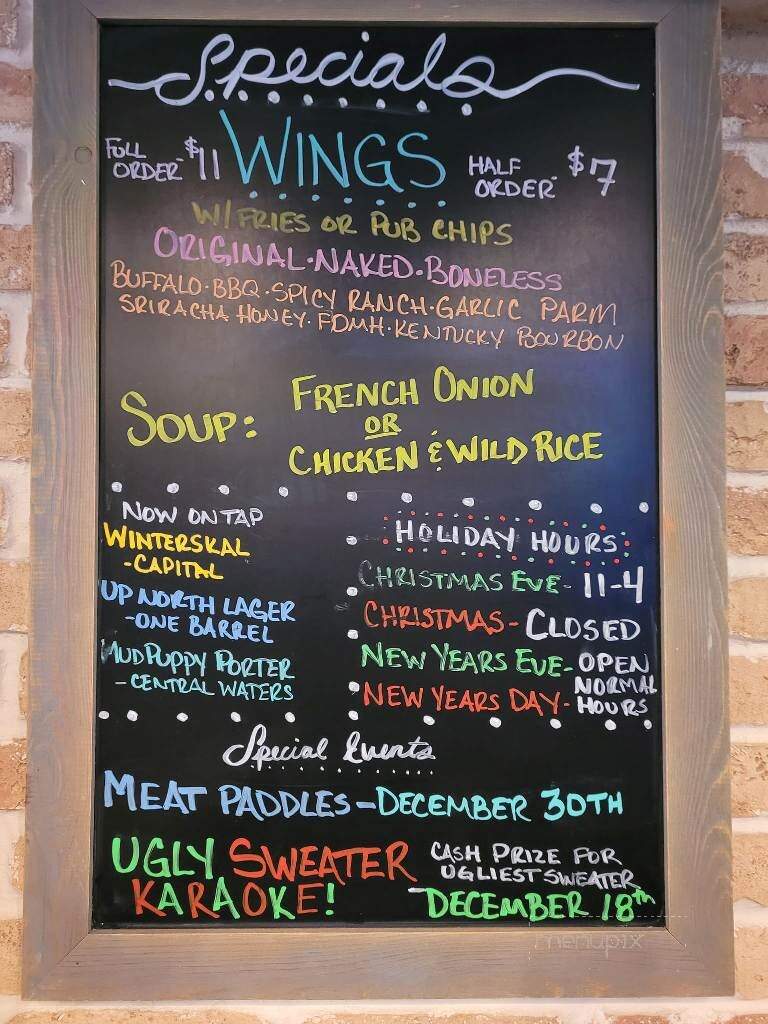 Specials
FULL ORDER $11 WINGS HALF ORDER $7
W/ FRIES OR PUB CHIPS
ORIGINAL · NAKED · BONELESS
BUFFALO · BBQ · SPICY RANCH · GARLIC PARM
SRIRACHA HONEY · FDMH · KENTUCKY BOURBON
SOUP: FRENCH ONION
OR
CHICKEN & WILD RICE
NOW ON TAP
WINTERSKAL
-CAPITAL
UP NORTH LAGER
-ONE BARREL
MUD PUPPY PORTER
-CENTRAL WATERS
HOLIDAY HOURS:
CHRISTMAS EVE- 11-4
CHRISTMAS- CLOSED
NEW YEARS EVE- OPEN
NEW YEARS DAY- NORMAL HOURS
Special Events
MEAT PADDLES - DECEMBER 30TH
UGLY SWEATER
KARAOKE!
CASH PRIZE FOR
UGLIEST SWEATER
DECEMBER 18th
menupix